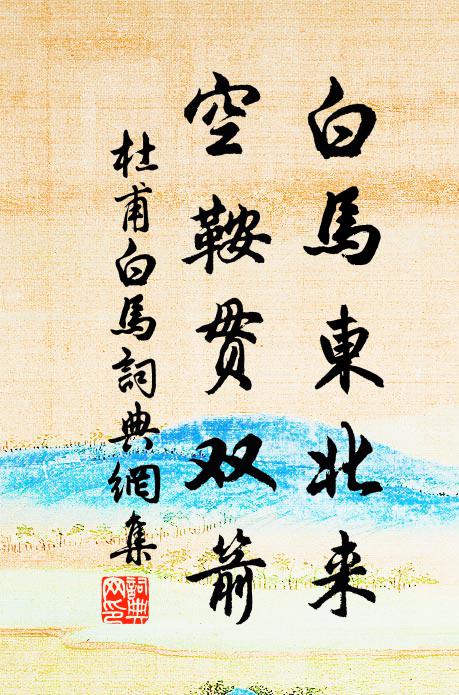 白馬東北来
空鞍貫双箭
杜甫白馬詞典網集
詞典